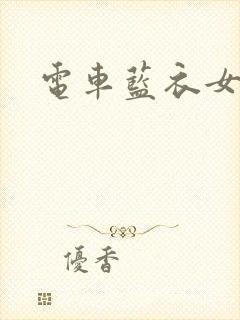 電車藍衣女
優香